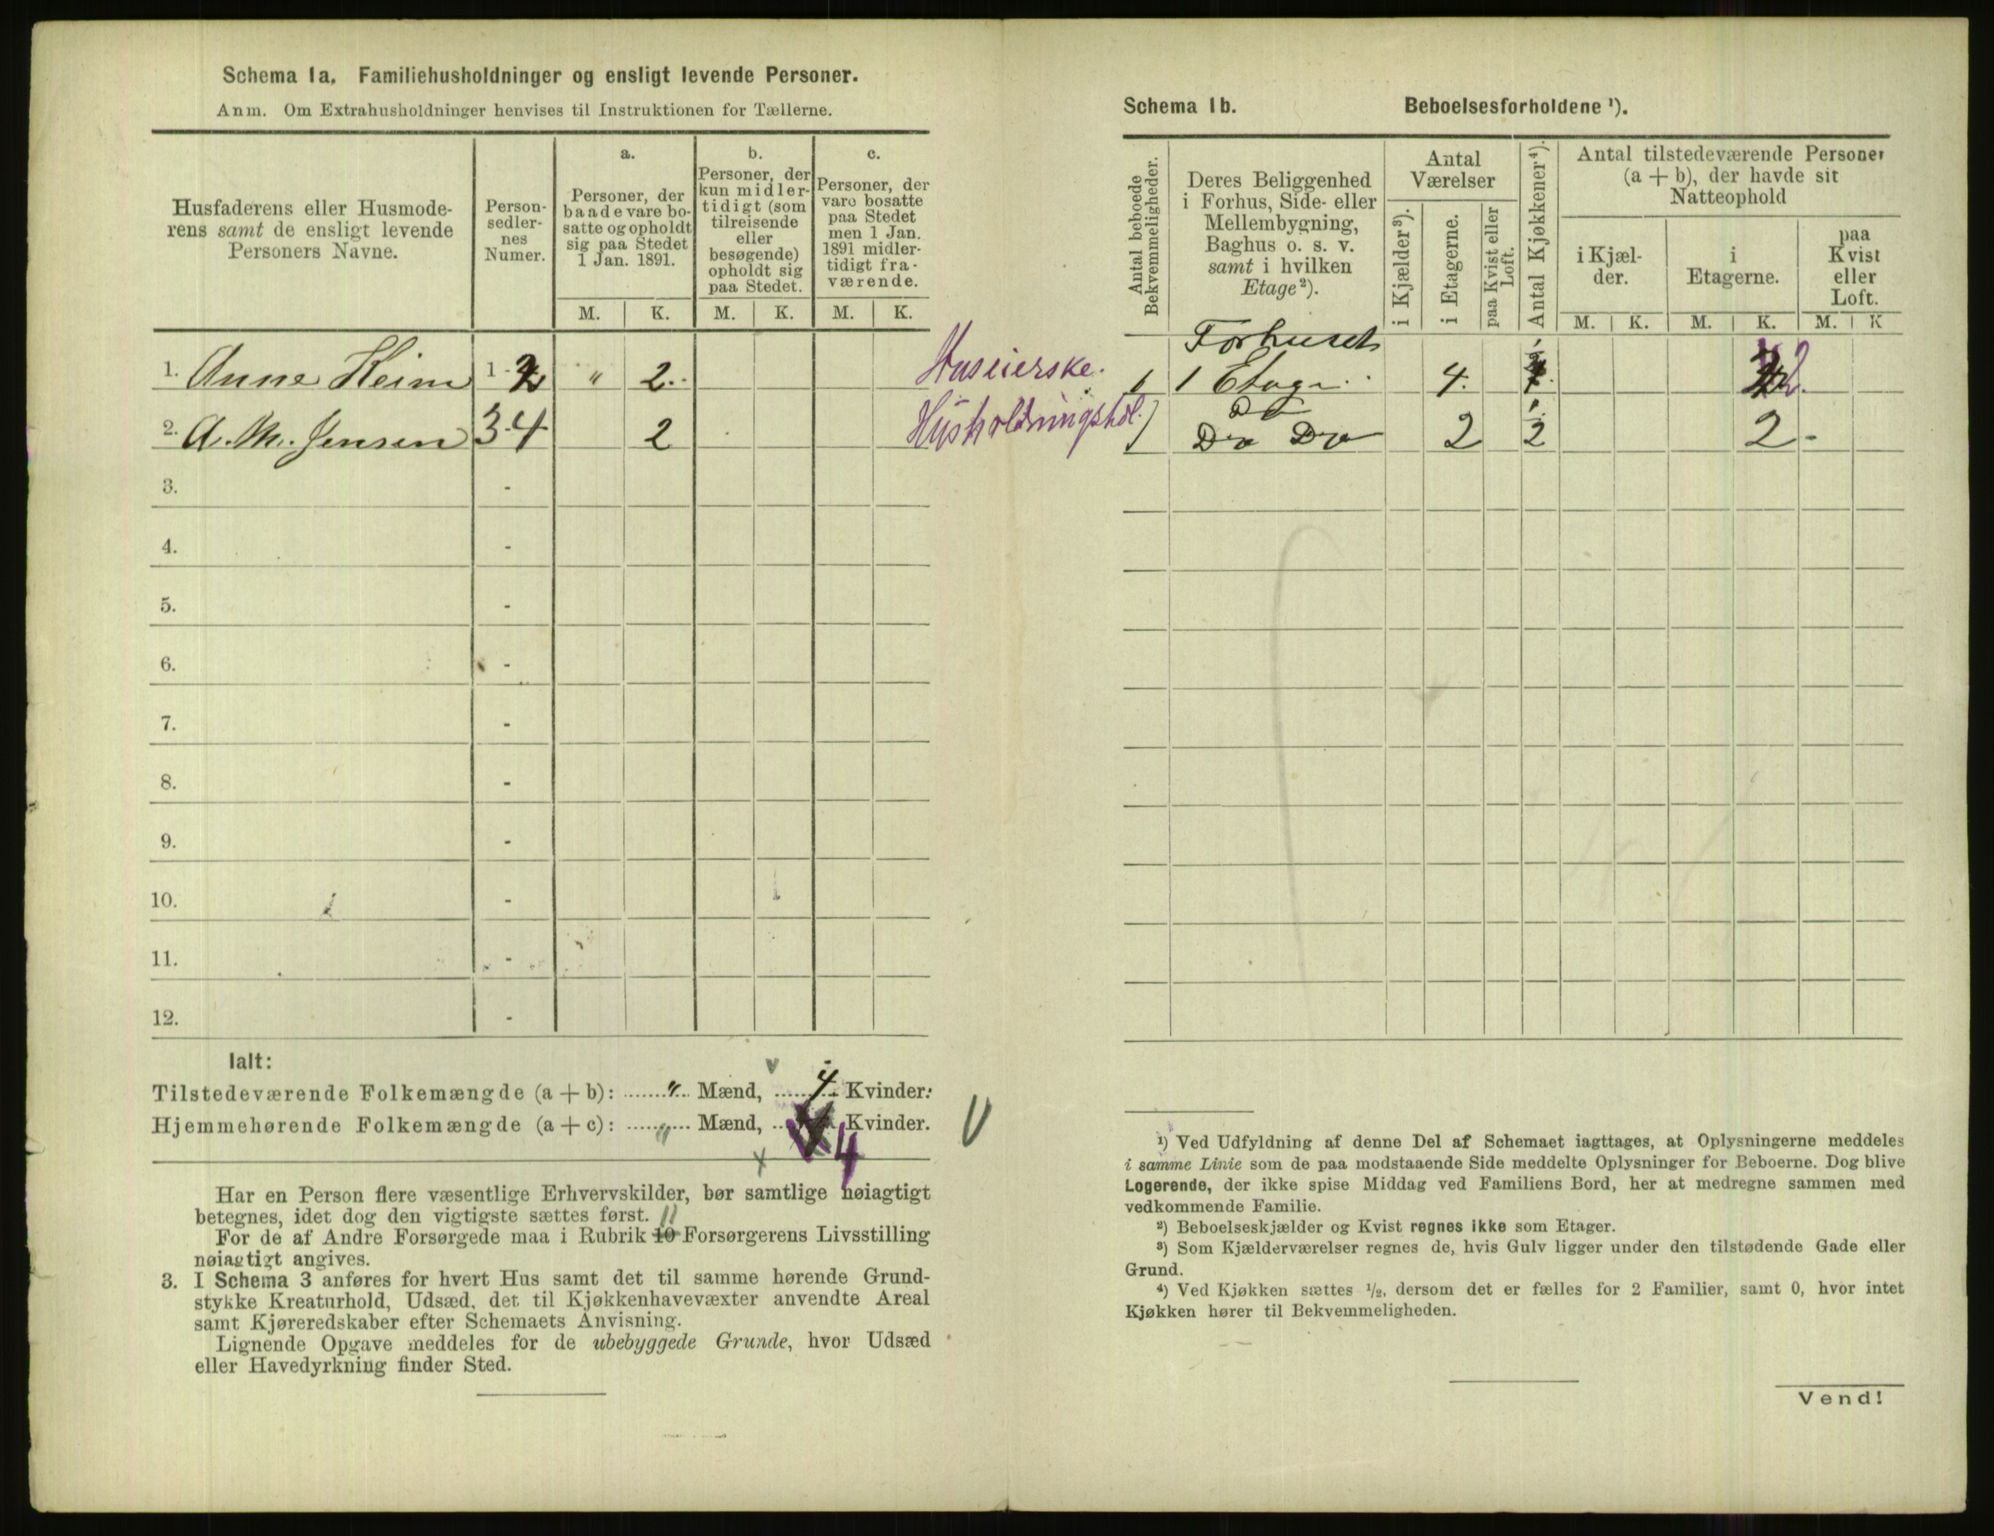 Schema 1a. Familiehusholdninger og ensligt levende Personer.
Anm. Om Extrahusholdninger henvises til Instruktionen for Tællerne.
Husfaderens eller Husmode-
rens samt de ensligt levende
Personers Navne.
Person-
sedler-
nes
Numer.
a.
Personer, der
baade vare bo-
satte og opholdt
sig paa Stedet
1 Jan. 1891.
b.
Personer, der
kun midler-
tidigt (som
tilreisende
eller
besøgende)
opholdt sig
paa Stedet.
c.
Personer, der
vare bosatte
paa Stedet
men 1 Jan.
1891 midler-
tidigt fra-
værende.
M. K. M. K. M. K.
1. Anne Heim 1-2 " 2. Huseierske.
2. A. M. Jensen 3-4 2 Husholdningshol.
3. -
4. -
5. -
6. -
7. -
8. -
9. -
10. -
11. -
12. -
Ialt:
Tilstedeværende Folkemængde (a + b): " Mænd, 4 Kvinder.
Hjemmehørende Folkemængde (a + c): " Mænd, 4 Kvinder.
Har en Person flere væsentlige Erhvervskilder, bør samtlige nøiagtigt
betegnes, idet dog den vigtigste sættes først. 11
For de af Andre Forsørgede maa i Rubrik 10 Forsørgerens Livsstilling
nøiagtigt angives.
3. I Schema 3 anføres for hvert Hus samt det til samme hørende Grund-
stykke Kreaturhold, Udsæd, det til Kjøkkenhavevæxter anvendte Areal
samt Kjøreredskaber efter Schemaets Anvisning.
Lignende Opgave meddeles for de ubebyggede Grunde, hvor Udsæd
eller Havedyrkning finder Sted.
Schema 1b. Beboelsesforholdene ¹).
Antal beboede
Bekvemmeligheder.
Deres Beliggenhed
i Forhus, Side- eller
Mellembygning,
Baghus o. s. v.
samt i hvilken
Etage²).
Antal
Værelser
i Kjælder³).
i Etagerne.
paa Kvist eller
Loft.
Antal Kjøkkener⁴).
Antal tilstedeværende Personer
(a + b), der havde sit
Natteophold
i Kjæl-
der.
i
Etagerne.
paa
Kvist
eller
Loft.
M. K. M. K. M. K
Forhuset
1 1 Etage. 4. 2.
Do
1 Do Do 2 ½ 2 -
¹) Ved Udfyldning af denne Del af Schemaet iagttages, at Oplysningerne meddeles
i samme Linie som de paa modstaaende Side meddelte Oplysninger for Beboerne. Dog blive
Logerende, der ikke spise Middag ved Familiens Bord, her at medregne sammen med
vedkommende Familie.
²) Beboelseskjælder og Kvist regnes ikke som Etager.
³) Som Kjælderværelser regnes de, hvis Gulv ligger under den tilstødende Gade eller
Grund.
⁴) Ved Kjøkken sættes ½, dersom det er fælles for 2 Familier, samt 0, hvor intet
Kjøkken hører til Bekvemmeligheden.
Vend!